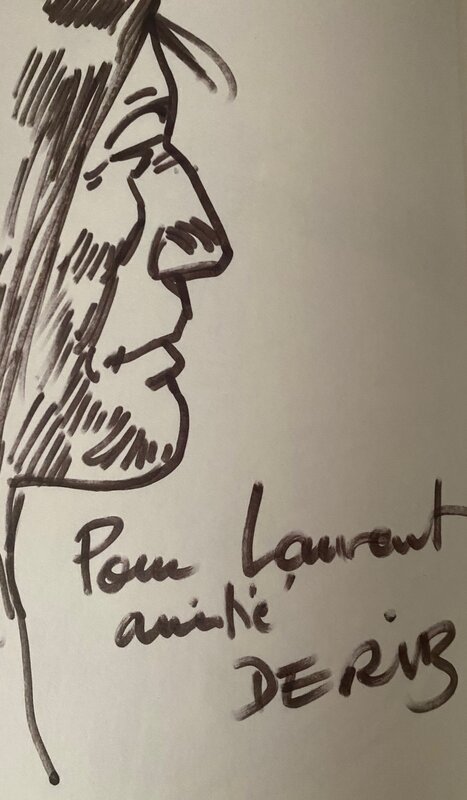 Pour Laurent
amitié
DERIB